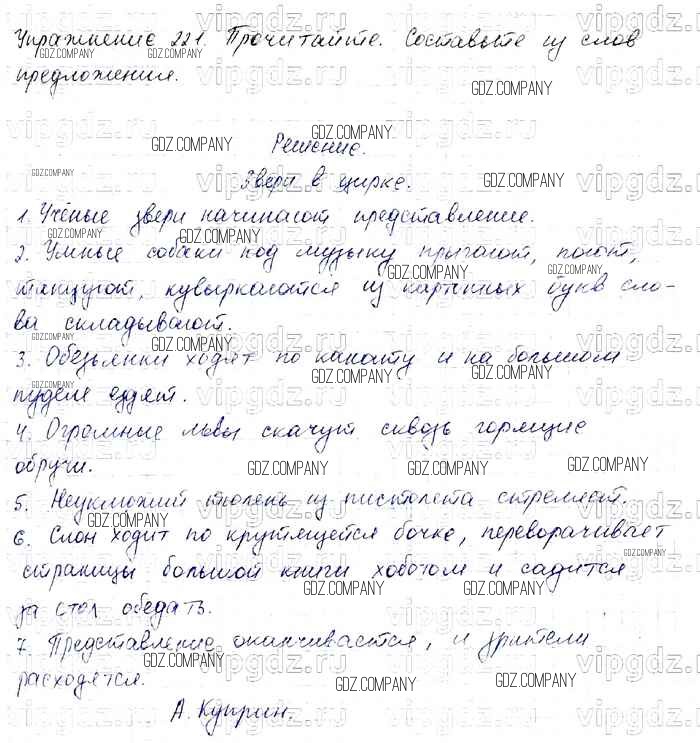 Упражнение 221. Прочитайте. Составьте из слов
предложения.
Решение.
Звери в цирке.
1. Учёные звери начинают представление.
2. Умные собаки под музыку прыгают, поют,
танцуют, кувыркаются из картонных букв сло-
ва складывают.
3. Обезьянки ходят по канату и на большом
пуделе ездят.
4. Огромные львы скачут сквозь горящие
обручи.
5. Неуклюжий тюлень из пистолета стреляет.
6. Слон ходит по крутящейся бочке, переворачивает
страницы большой книги хоботом и садится
за стол обедать.
7. Представление оканчивается, и зрители
расходятся.
А. Куприн.